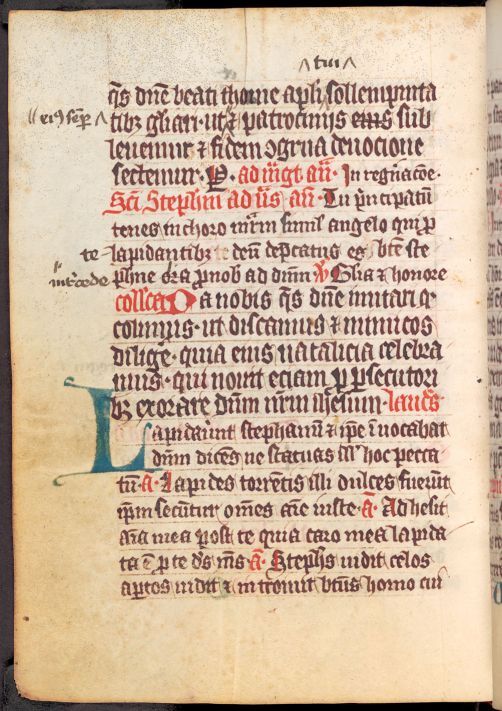 tui
qs dne beati thome apli sollempnita
ei9 semp
tibz gliari · ut & patrocinijs eius sub
leuemur & fidem ogrua deuocione
sectemur · P. ad mgt añ · In regnacoe ·
Sci Stephni ad us añ · Tu principatum
tenes in choro mrm simil angelo qui p
te lapidantibz deu depcatus es bte ste
intcede
phne ora pnob ad dnm V Glia & honore
collca Da nobis qs dne imitari q
colimus · ut discamus & inimicos
dilige · quia eius natalicia celebra
mus · qui nouit eciam p psecutori
bz exorare dnm nrm ihesum · laudes
Lapidauerunt stephanu & ipe inuocabat
dnm dices ne statuas ill hoc pecca
tu · a · Lapides torrentis illi dulces fuerut
ipm secuntur omes aie iuste · a · Adhesit
aia mea post te quia caro mea lapida
ta e p te ds ms · a · Stephs uidit celos
aptos uidit & introiuit btus homo cui